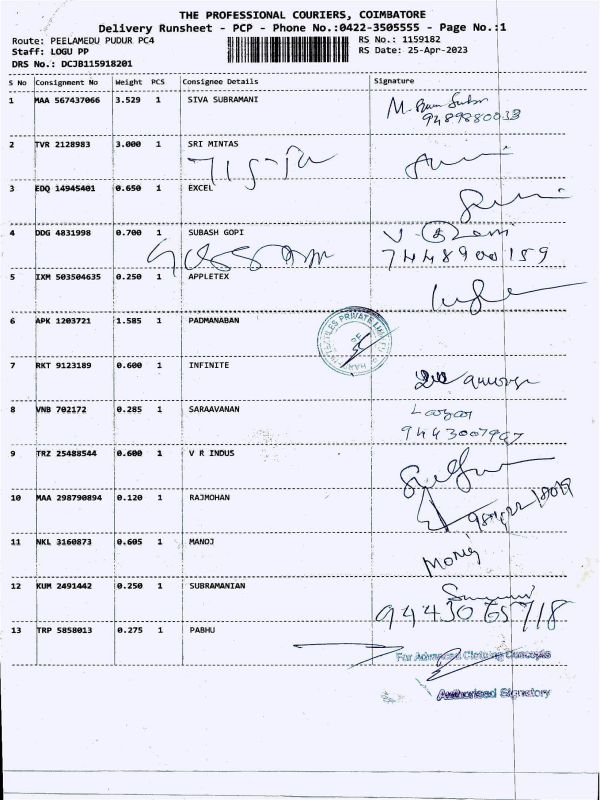 THE PROFESSIONAL COURIERS, COIMBATORE
Delivery Runsheet - PCP - Phone No.:0422-3505555 - Page No.:1
Route: PEELAMEDU PUDUR PC4 RS No.: 1159182
Staff: LOGU PP RS Date: 25-Apr-2023
DRS No.: DCJB115918201
S No Consignment No Weight PCS Consignee Details Signature
1 MAA 567437066 3.529 1 SIVA SUBRAMANI
9489880033
2 TVR 2128983 3.000 1 SRI MINTAS
3 EDQ 14945401 0.650 1 EXCEL
4 DDG 4831998 0.700 1 SUBASH GOPI
7448900159
5 IXM 503504635 0.250 1 APPLETEX
6 APK 1203721 1.585 1 PADMANABAN
7 RKT 9123189 0.600 1 INFINITE
8 VNB 702172 0.285 1 SARAAVANAN
9 TRZ 25488544 0.600 1 V R INDUS
10 MAA 298790894 0.120 1 RAJMOHAN
11 NKL 3160873 0.605 1 MANOJ
12 KUM 2491442 0.250 1 SUBRAMANIAN
13 TRP 5858013 0.275 1 PABHU
For Advanced Clothing Concepts
Authorised Signatory